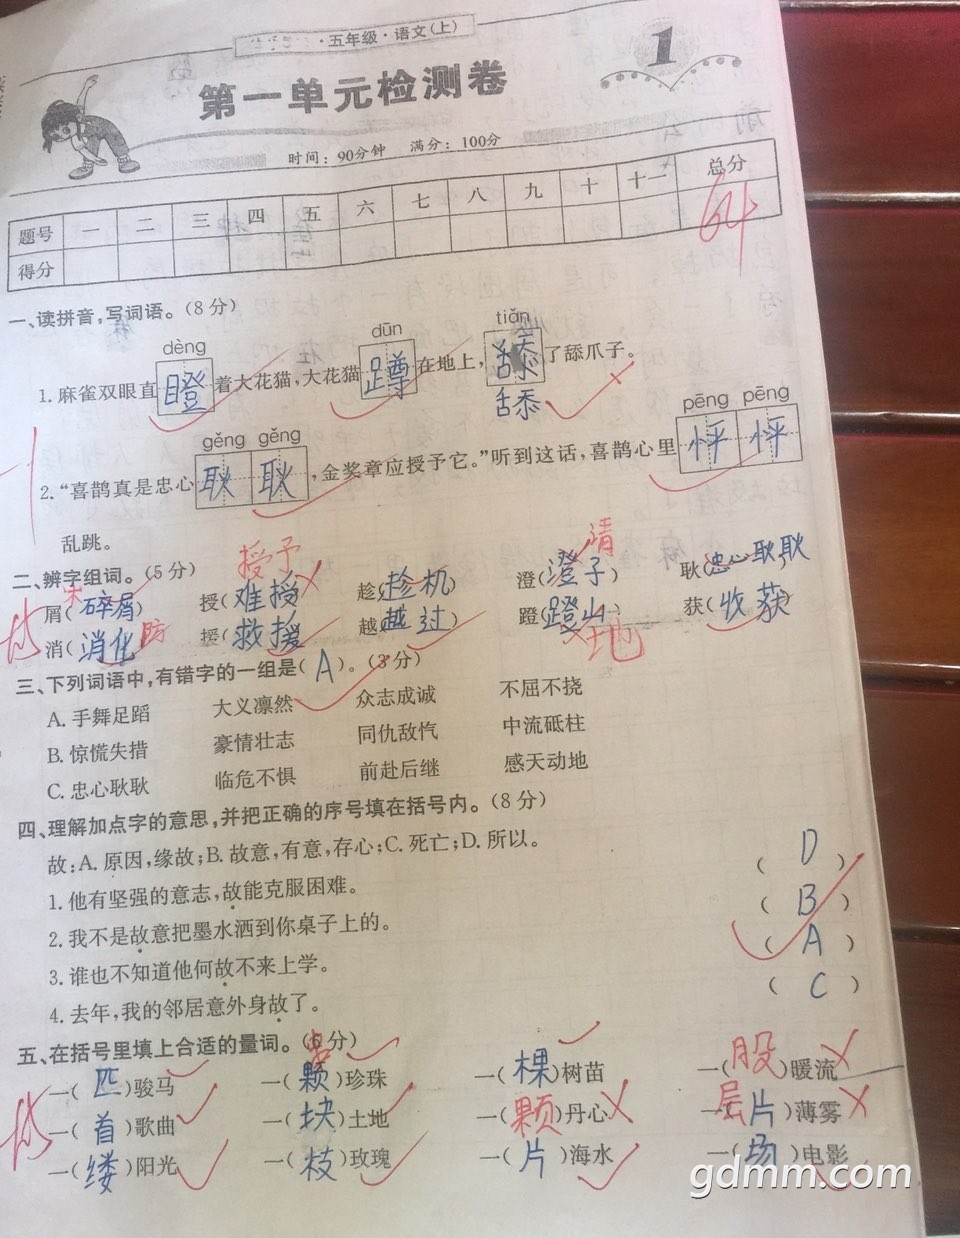 ·五年级·语文(上)
1
第一单元检测卷
时间:90分钟 满分:100分
题号 一 二 三 四 五 六 七 八 九 十 十一 总分
得分 64
一、读拼音,写词语。(8分)
dèng dūn tiǎn
1.麻雀双眼直瞪着大花猫,大花猫蹲在地上,舔了舔爪子。
舔
gěng gěng pēng pēng
2.“喜鹊真是忠心耿耿,金奖章应授予它。”听到这话,喜鹊心里怦怦
乱跳。
授予 清
二、辨字组词。(5分)
屑(碎屑) 授(难授) 趁(趁机) 澄(澄子) 耿(忠心耿耿)
消(消化) 援(救援) 越(越过) 蹬(蹬山) 获(收获)
防 地
三、下列词语中,有错字的一组是(A)。(3分)
A.手舞足蹈 大义凛然 众志成诚 不屈不挠
B.惊慌失措 豪情壮志 同仇敌忾 中流砥柱
C.忠心耿耿 临危不惧 前赴后继 感天动地
四、理解加点字的意思,并把正确的序号填在括号内。(8分)
故:A.原因,缘故;B.故意,有意,存心;C.死亡;D.所以。
1.他有坚强的意志,故能克服困难。 (D)
2.我不是故意把墨水洒到你桌子上的。 (B)
3.谁也不知道他何故不来上学。 (A)
4.去年,我的邻居意外身故了。 (C)
五、在括号里填上合适的量词。(6分)
股
一(匹)骏马 一(颗)珍珠 一(棵)树苗 一( )暖流
层
一(首)歌曲 一(块)土地 一(颗)丹心 一(片)薄雾
一(缕)阳光 一(枝)玫瑰 一(片)海水 一(场)电影
gdmm.com